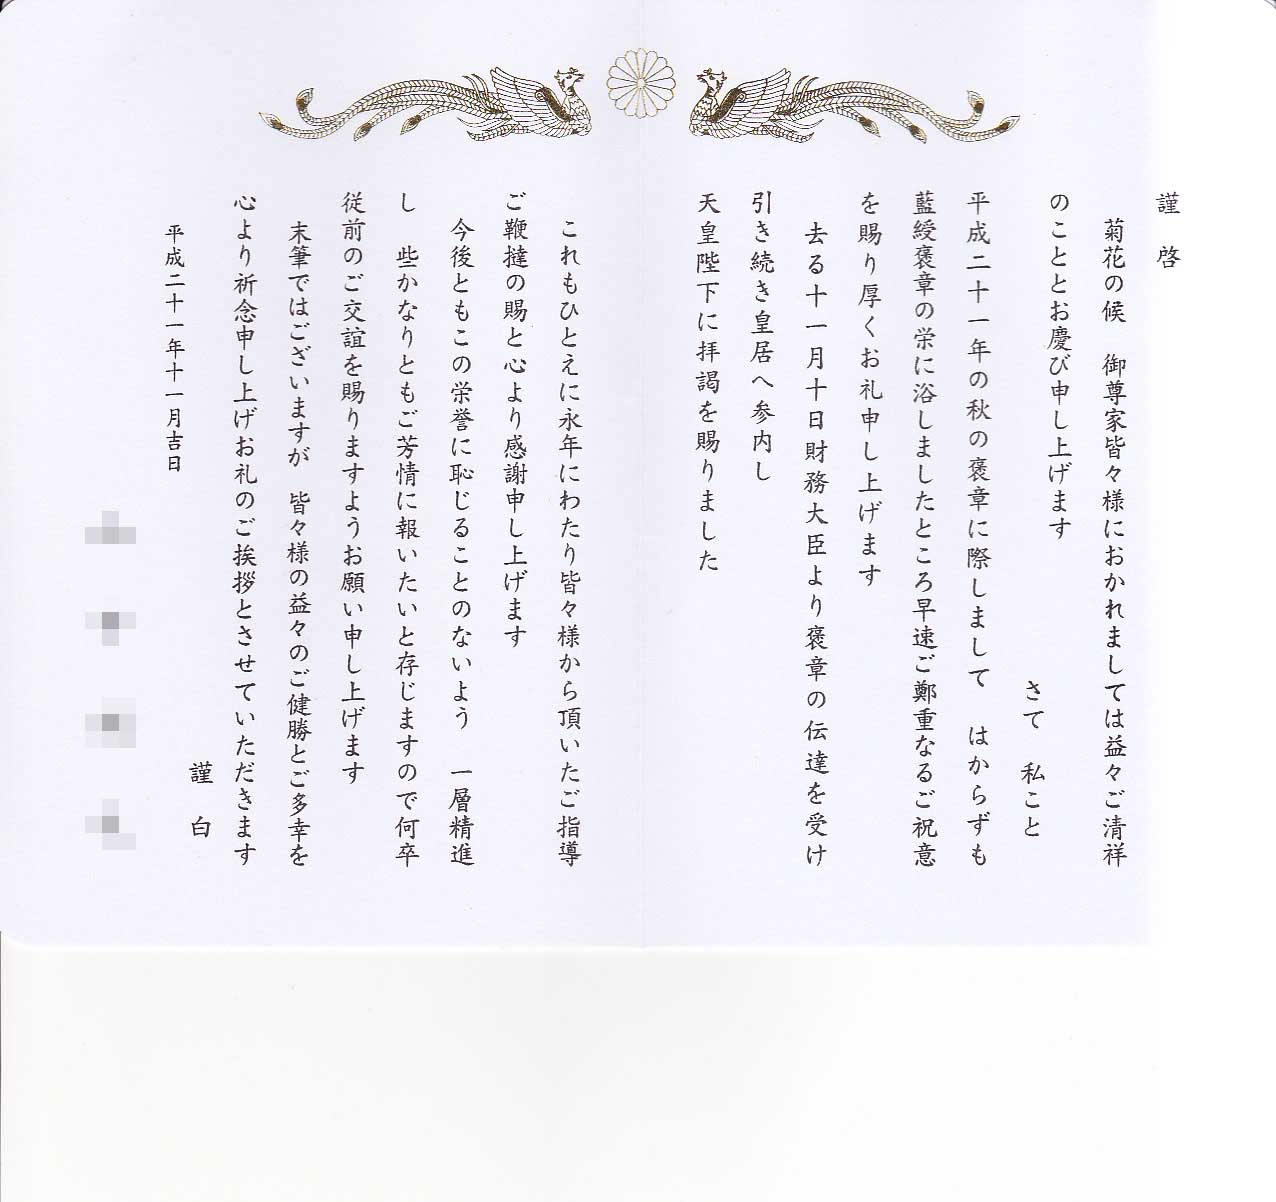 謹啓
菊花の候　御尊家皆々様におかれましては益々ご清祥
のこととお慶び申し上げます
さて　私こと
平成二十一年の秋の褒章に際しまして　はからずも
藍綬褒章の栄に浴しましたところ早速ご鄭重なるご祝意
を賜り厚くお礼申し上げます
去る十一月十日財務大臣より褒章の伝達を受け
引き続き皇居へ参内し
天皇陛下に拝謁を賜りました
これもひとえに永年にわたり皆々様から頂いたご指導
ご鞭撻の賜と心より感謝申し上げます
今後ともこの栄誉に恥じることのないよう　一層精進
し　些かなりともご芳情に報いたいと存じますので何卒
従前のご交誼を賜りますようお願い申し上げます
末筆ではございますが　皆々様の益々のご健勝とご多幸を
心より祈念申し上げお礼のご挨拶とさせていただきます
謹白
平成二十一年十一月吉日